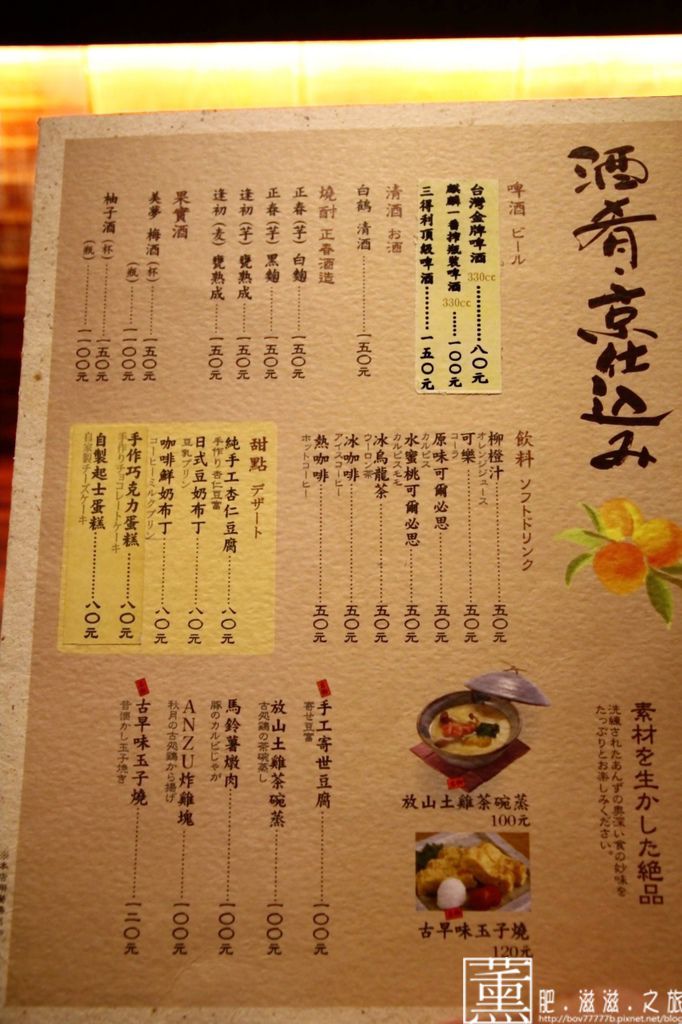 酒肴・烹仕込み
啤酒 ビール
台灣金牌啤酒 330cc…………八〇元
麒麟一番搾瓶裝啤酒 330cc……一〇〇元
三得利頂級啤酒…………一五〇元
清酒 お酒
白鶴 清酒…………一五〇元
燒酎 正春酒造
正春（芋）白麹…………一五〇元
正春（芋）黑麹…………一五〇元
逢初（芋）甕熟成…………一五〇元
逢初（麦）甕熟成…………一五〇元
果實酒
美夢 梅酒（杯）…………一五〇元
（瓶）…………一〇〇〇元
柚子酒（杯）…………一五〇元
（瓶）…………一一〇〇元
飲料 ソフトドリンク
柳橙汁…………五〇元
オレンジジュース
可樂…………五〇元
コーラ
原味可爾必思…………五〇元
カルピス
水蜜桃可爾必思…………五〇元
カルピスモモ
冰烏龍茶…………五〇元
ウーロン茶
冰咖啡…………五〇元
アイスコーヒー
熱咖啡…………五〇元
ホットコーヒー
甜點 デザート
純手工杏仁豆腐…………八〇元
手作り杏仁豆富
日式豆奶布丁…………八〇元
豆乳プリン
咖啡鮮奶布丁…………八〇元
コーヒーミルクプリン
手作巧克力蛋糕…………八〇元
手作りチョコレートケーキ
自製起士蛋糕…………八〇元
自家製チーズケーキ
素材を生かした絶品
洗練されたあんずの奥深い食の妙味を
たっぷりとお楽しみください。
放山土雞茶碗蒸
100元
古早味玉子燒
120元
手工寄世豆腐…………一〇〇元
寄せ豆富
放山土雞茶碗蒸…………一〇〇元
古処鶏の茶碗蒸し
馬鈴薯燉肉…………一〇〇元
豚のカルビじゃが
ANZU炸雞塊…………一〇〇元
秋月の古処鶏から揚げ
古早味玉子燒…………一二〇元
昔懐かし玉子焼き
薰 肥.滋滋.之旅
http://bov77777b.pixnet.net/blog